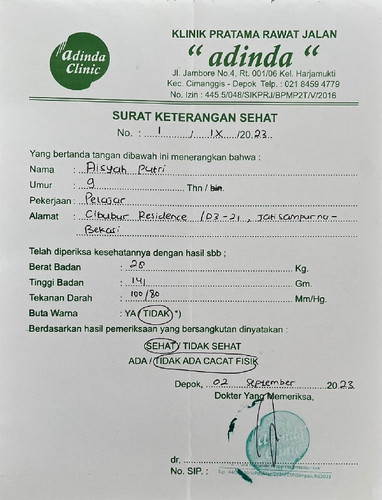 adinda
Clinic
KLINIK PRATAMA RAWAT JALAN
“ adinda “
Jl. Jambore No.4, Rt. 001/06 Kel. Harjamukti
Kec. Cimanggis - Depok Telp. : 021 8459 4779
No. Izin : 445.5/048/SIKPRJ/BPMP2T/V/2016
SURAT KETERANGAN SEHAT
No. : 1 / IX /2023
Yang bertanda tangan dibawah ini menerangkan bahwa :
Nama : Aisyah Putri
Umur : 9 Thn / bln.
Pekerjaan : Pelajar
Alamat : Cibubur Residence /D3-21, Jatisampurna-
Bekasi
Telah diperiksa kesehatannya dengan hasil sbb :
Berat Badan : 28 Kg.
Tinggi Badan : 141 Gm.
Tekanan Darah : 100/80 Mm/Hg.
Buta Warna : YA / TIDAK *)
Berdasarkan hasil pemeriksaan yang bersangkutan dinyatakan :
SEHAT / TIDAK SEHAT
ADA / TIDAK ADA CACAT FISIK
Depok, 02 September 2023
Dokter Yang Memeriksa,
adinda
dr.
No. SIP. :